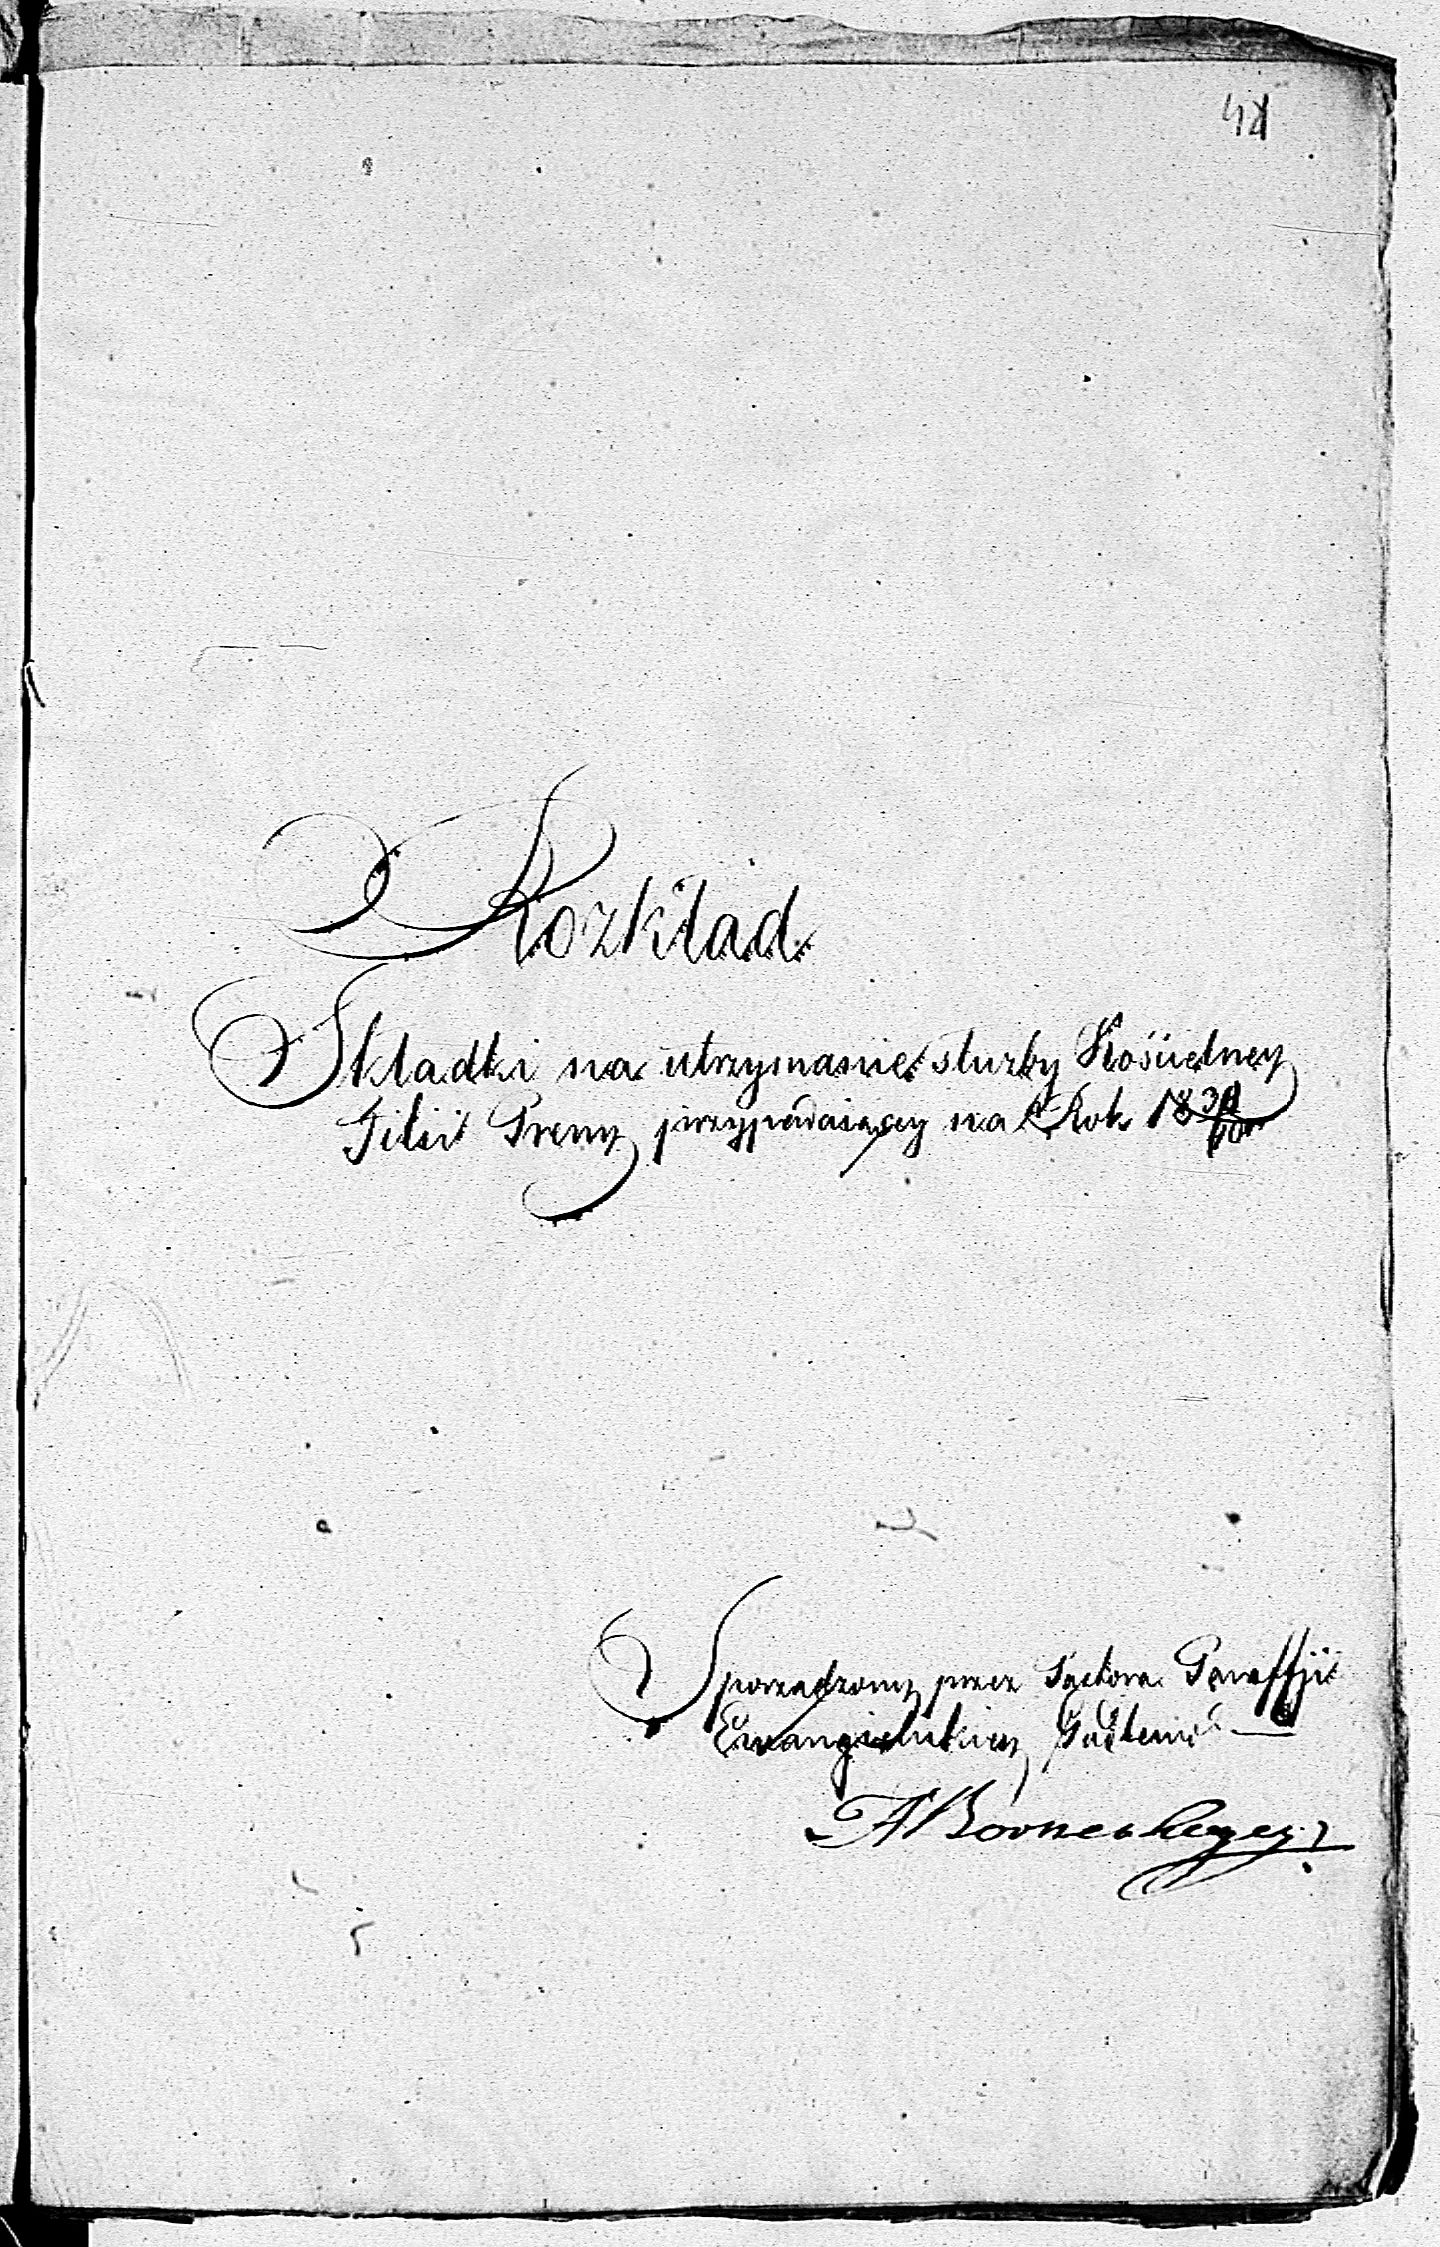 Rozkład
Składki na utrzymanie służby Kościelney
Filii Preny przypadaiącey na Rok 1839/40
Sporządzony przez Pastora Paraffji
Ewangielickiey Godlewo